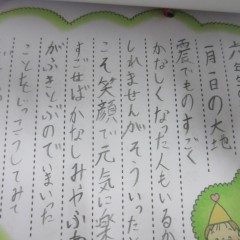 六年
一月一日の大地
震でものすごく
かなしくなった人もいるか
しれませんがそういったと
こそ笑顔で元気に楽
すごせばかなしみやふあ
がふきとぶのでまいった
ことをいっこうしてみて